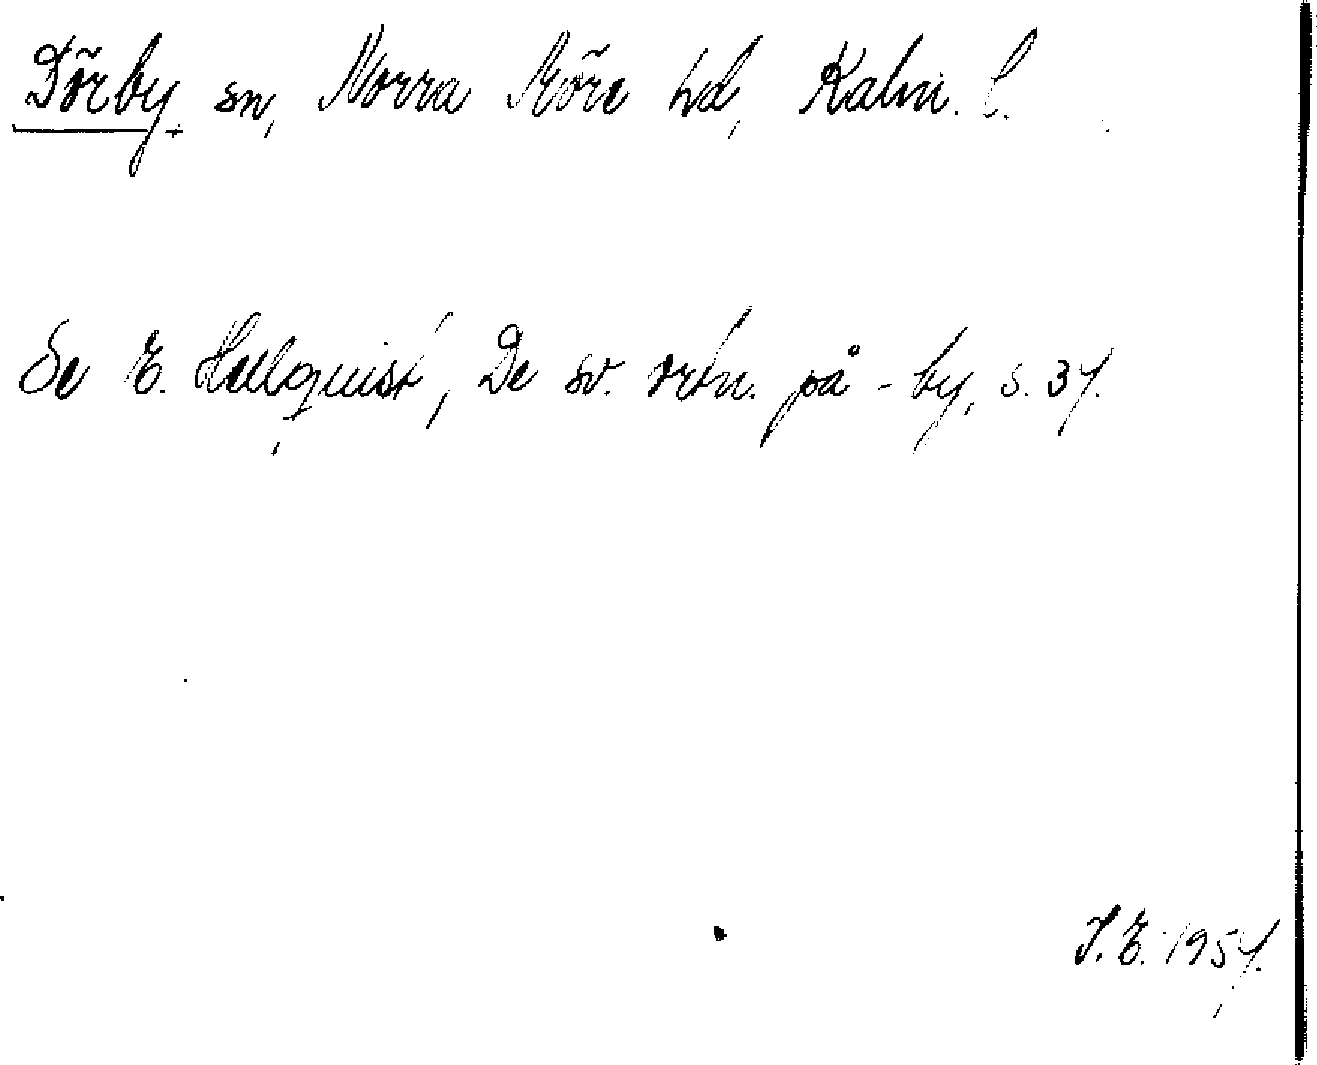 Dörby sn, Norra Möre hd, Kalm. l.
Se E. Hellquist, De sv. ortn. på -by, s. 37.
I. E. 1957.